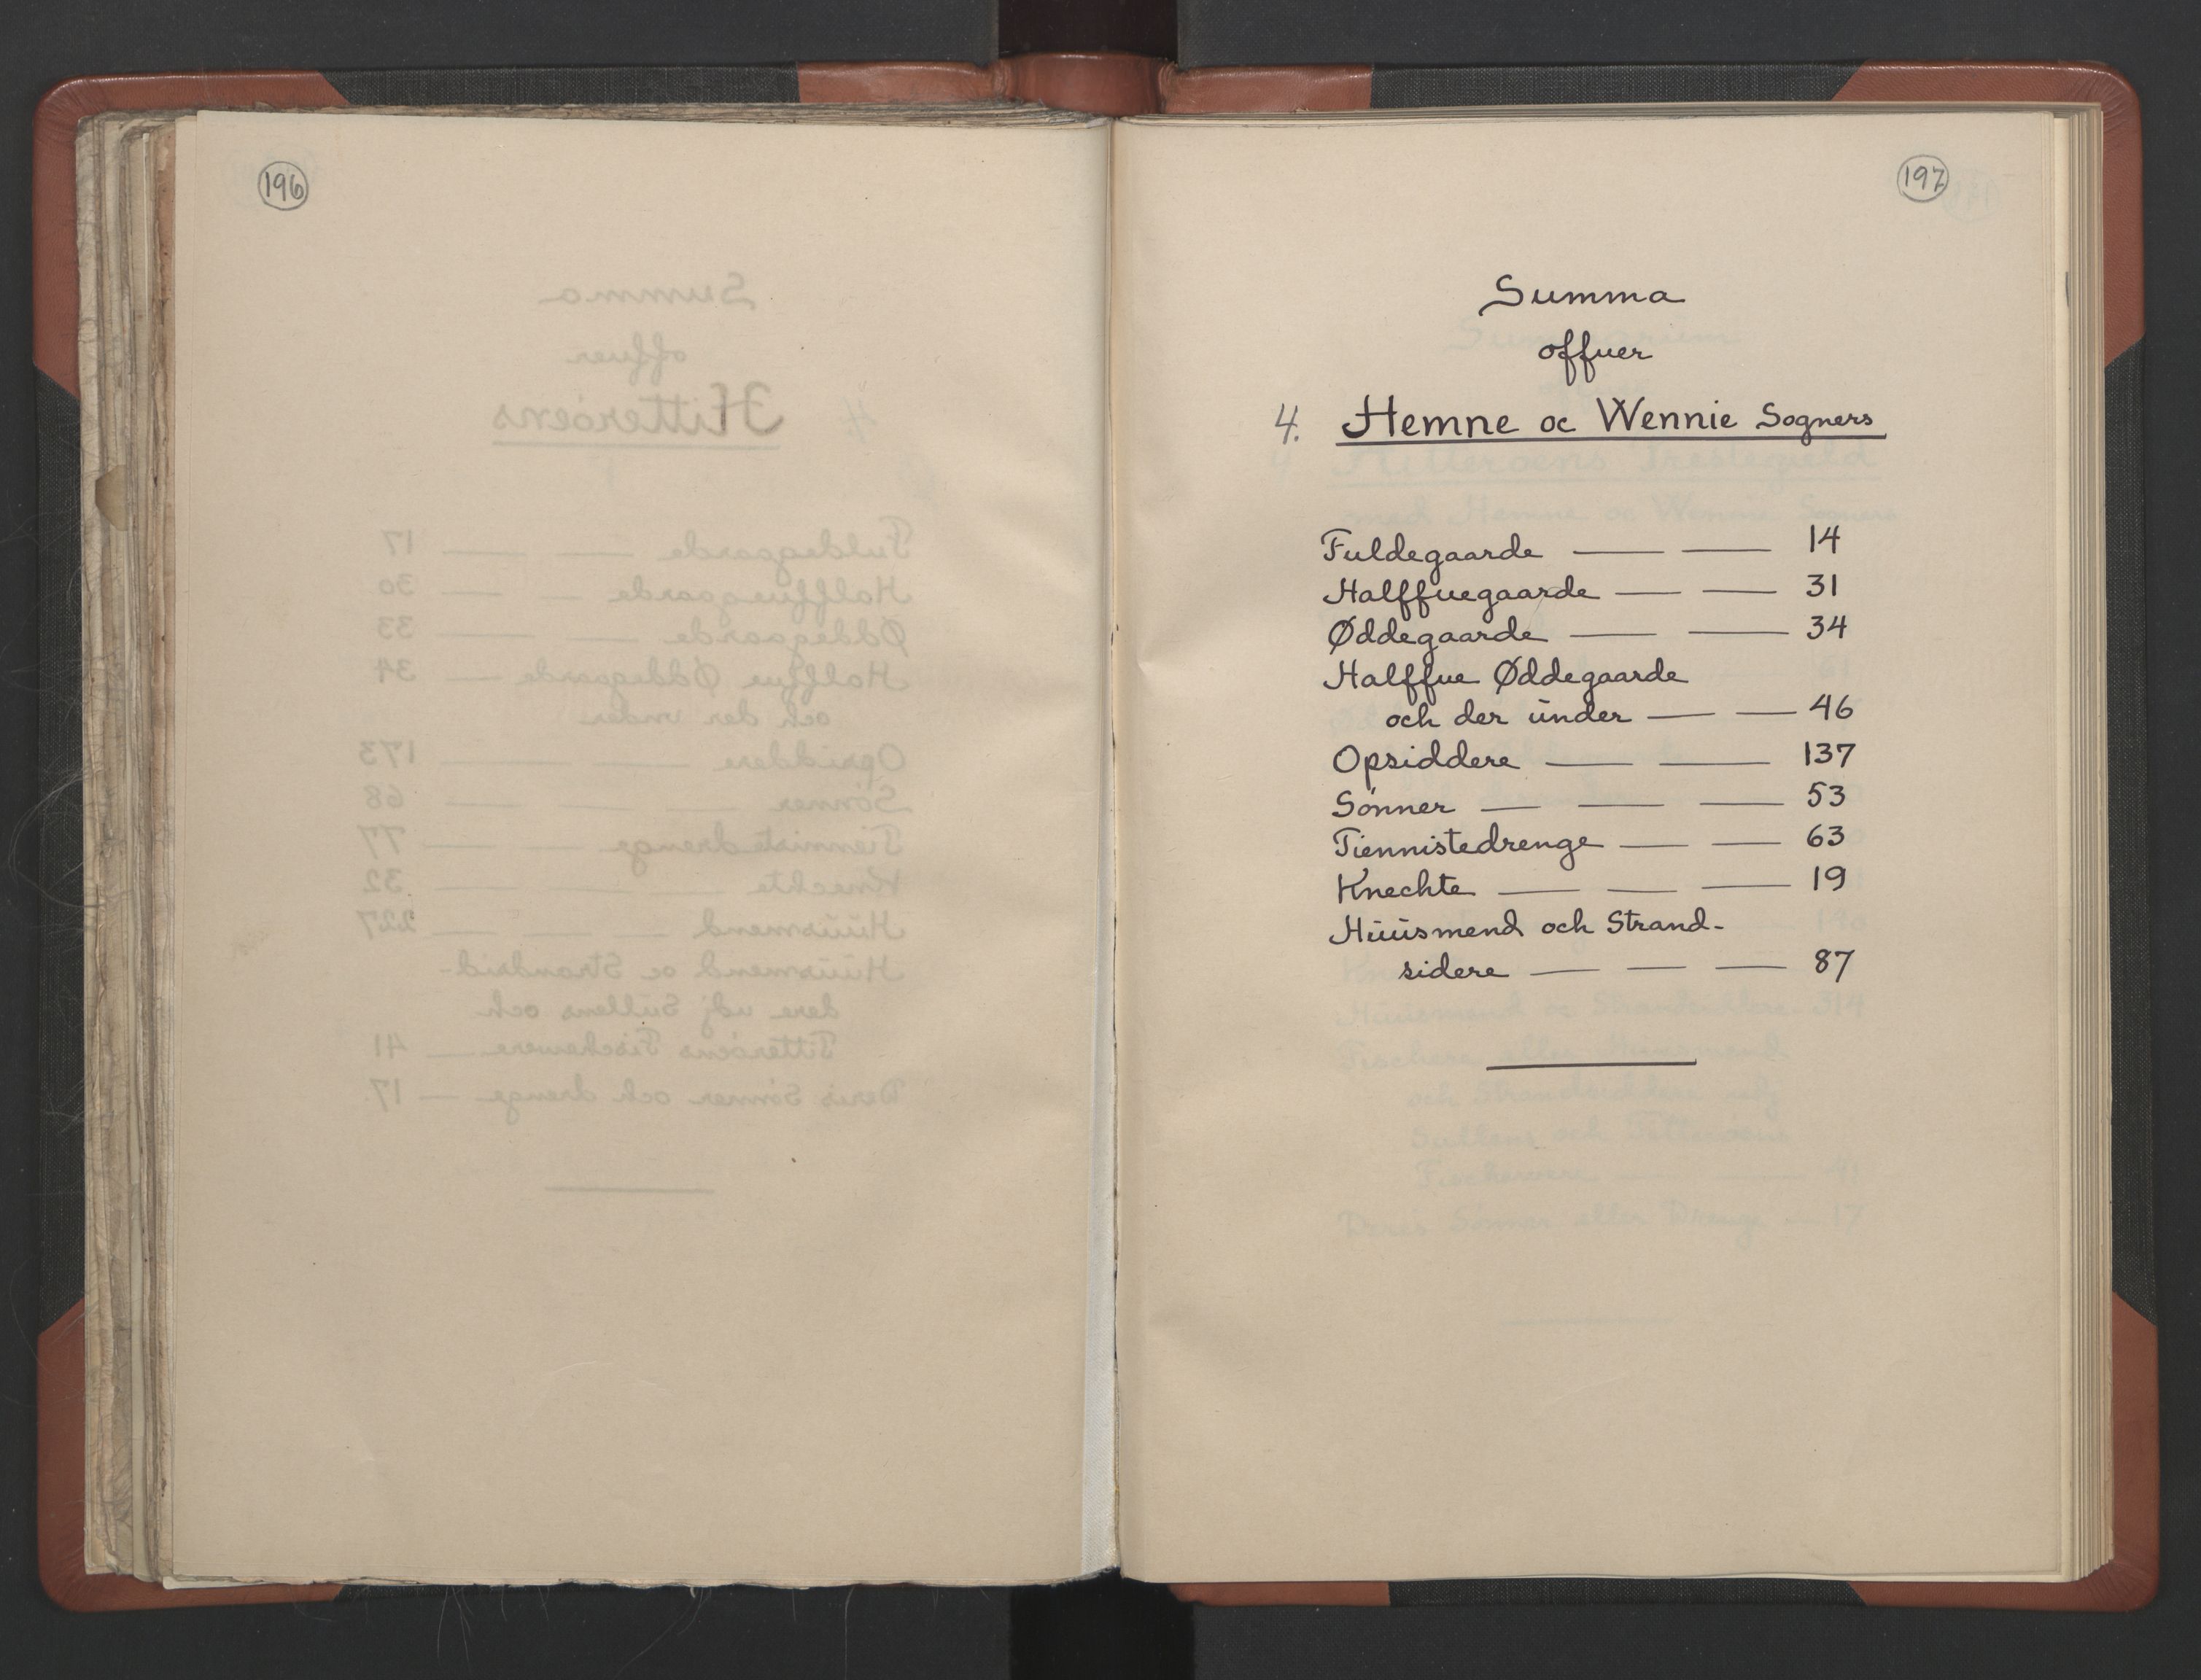 196
197
Summa
offuer
4. Hemne oc Wennie Sogners
Fuldegaarde — — 14
Halffuegaarde — — 31
Øddegaarde — — 34
Halffue Øddegaarde
och der ŭnder — — 46
Opsiddere — — 137
Sønner — — — 53
Tiennistedrenge — — 63
Knechte — — — 19
Huŭsmend och Strand-
sidere — — — 87